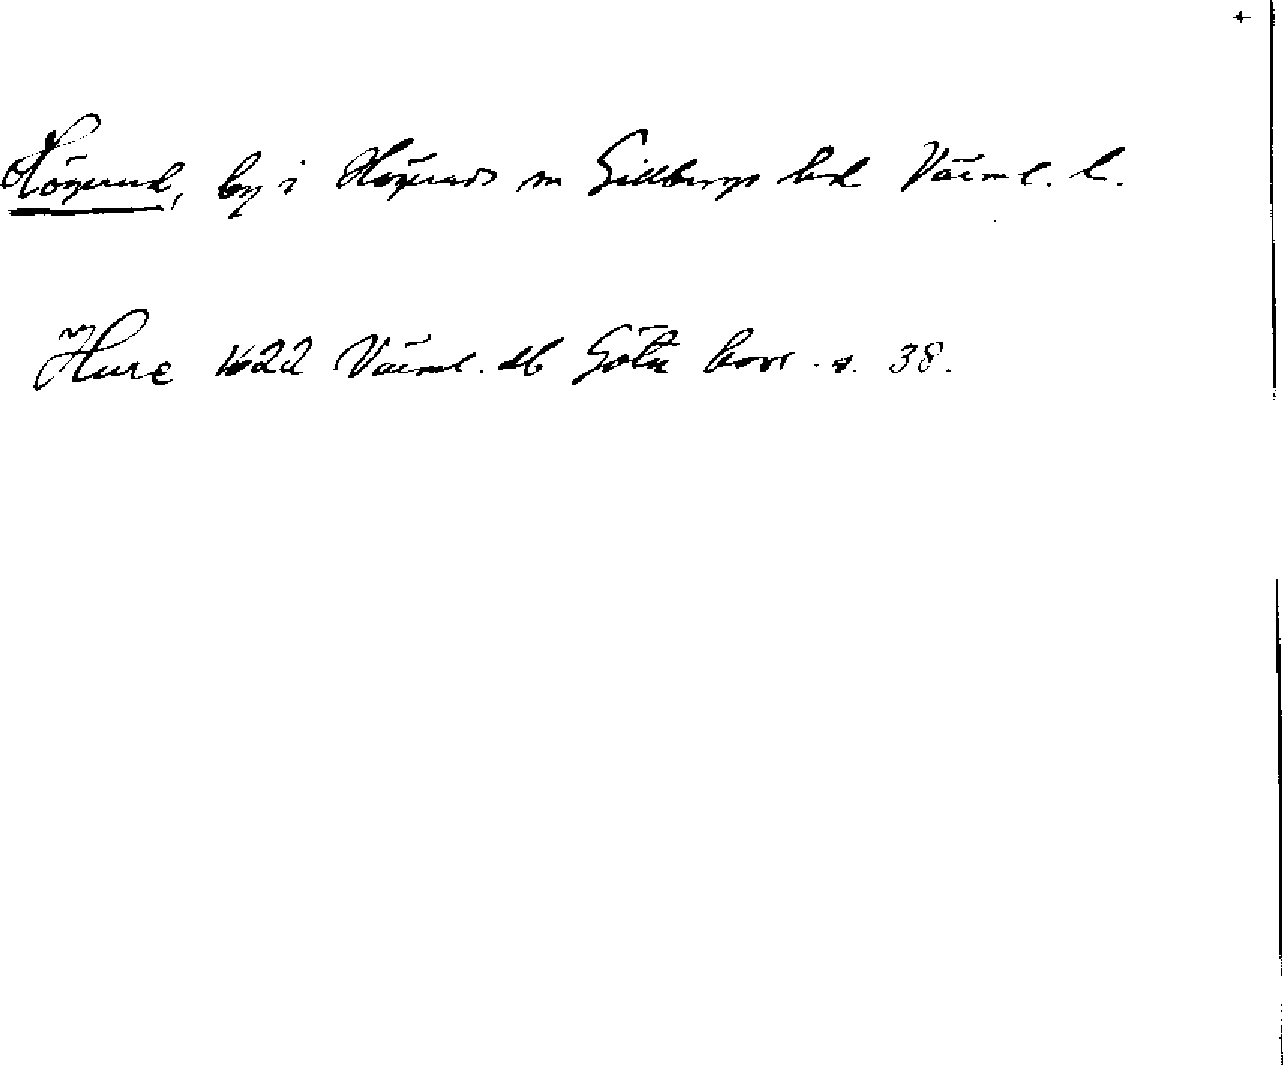 Högerud, by i Högeruds sn Gillbergs hd Värml. l.
Hure 1622 Värml. db Göta hovr. s. 38.